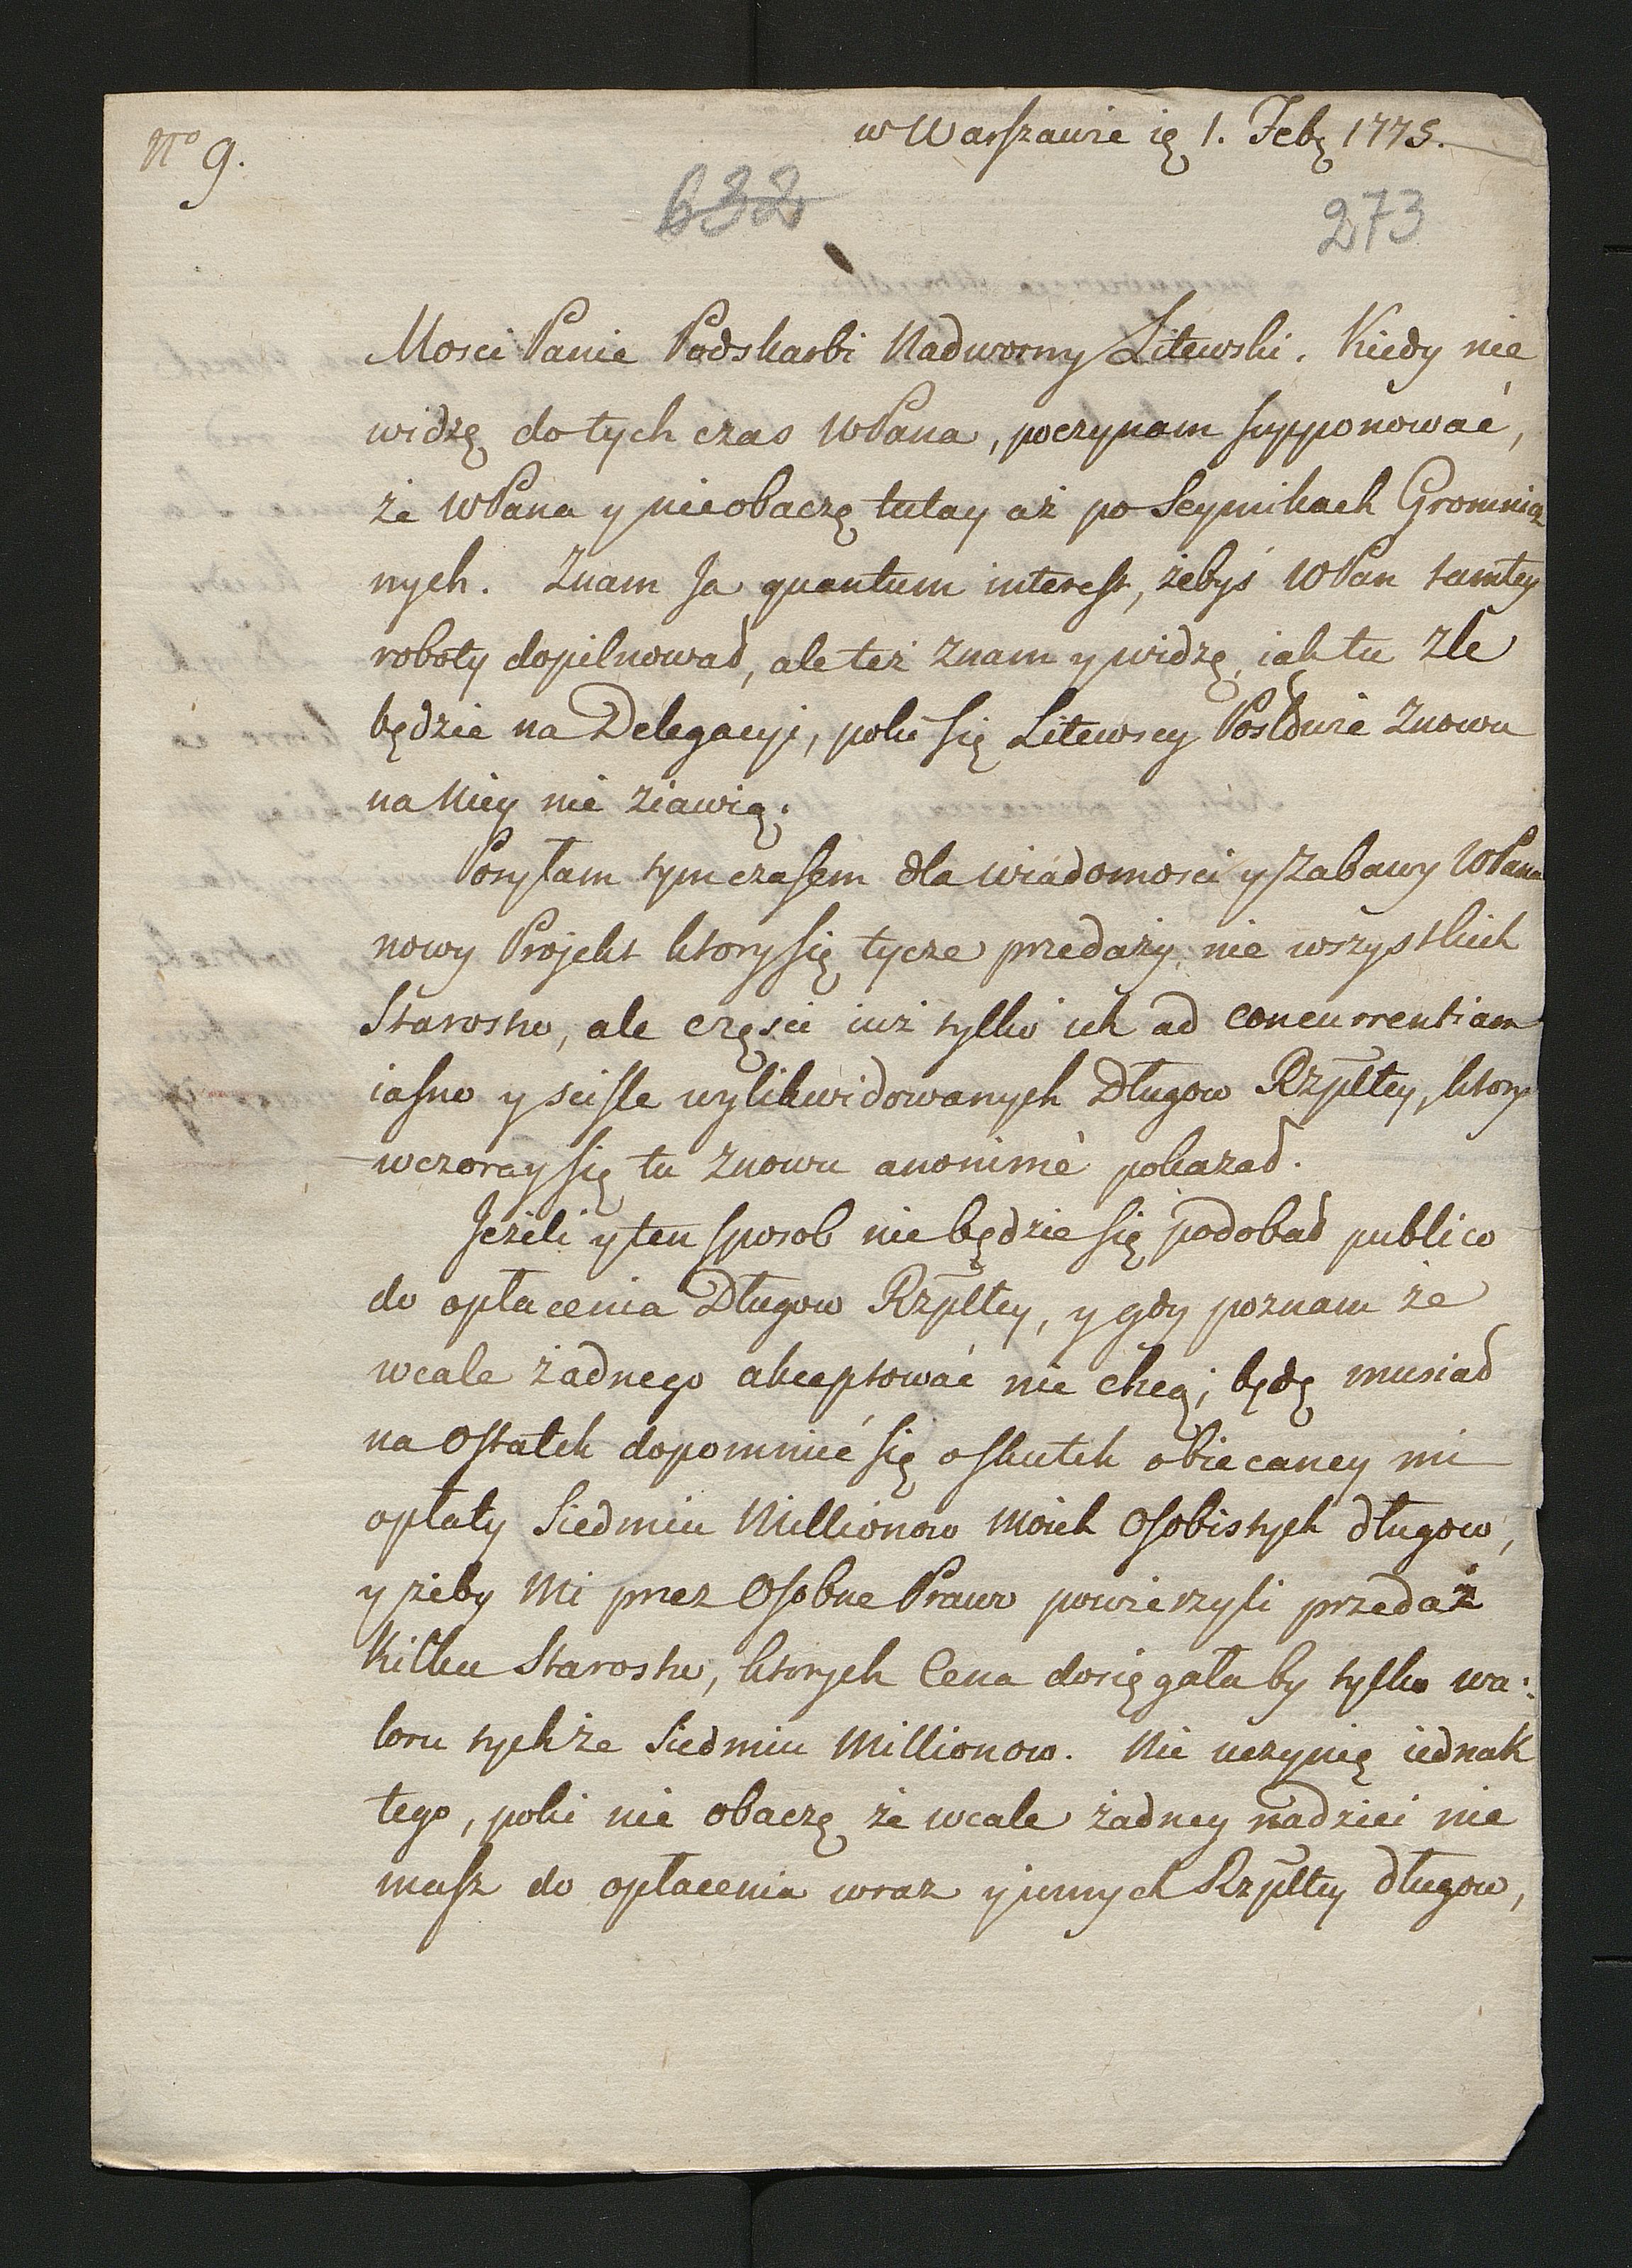 No 9.
w Warszawie ię 1. Febr 1775.
632
273
Mosci Panie Podskarbi Nadworny Litewski. Kiedy nie
widzę do tych czas WPana, poczynam supponować,
że WPana y nieobaczę tutay aż po Seymikach Gromnicz
nych. Znam Ja quantum interest, żebyś WPan tamtey
roboty dopilnował, ale też znam y widzę, iak tu zle
będzie na Delegacyi, poki się Litewscy Posłowie znowu
na Niey nie ziawią.
Posyłam tym czasem dla wiadomosci y zabawy WPana
nowy Projekt ktory się tycze przedaży nie wszystkich
Starostw, ale części iuż tylko ich ad concurrentiam
iasno y sciśle wylikwidowanych Długow Rzpltey, ktory
wczoray się tu znowu anonimè pokazał.
Jeżeli y ten sposob nie będzie się podobał publico
do opłacenia Długow Rzpltey, y gdy poznam że
wcale żadnego akceptować nie chcą; będę musiał
na Ostatek dopomnić się o skutek obiecaney mi
opłaty Siedmiu Millionow moich Osobistych długow,
y żeby Mi przez Osobne Prawo powierzyli przedaż
Kilku Starostw, ktorych Cena dosięgała by tylko wa:
loru tychże Siedmiu Millionow. Nie uczynię iednak
tego, poki nie obaczę że wcale żadney nadziei nie
masz do opłacenia wraz y innych Rzpltey długow,